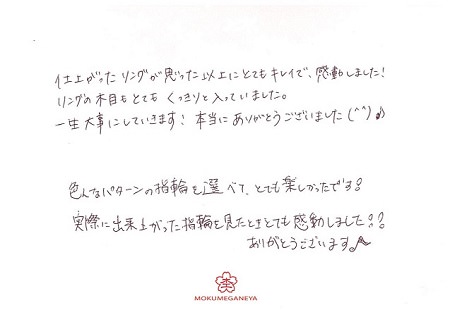 仕上がったリングが思った以上にとてもキレイで、感動しました!
リングの木目もとてもくっきりと入っていました。
一生大事にしていきます! 本当にありがとうございました(^^)♪
色んなパターンの指輪を選べて、とても楽しかったです!
実際に出来上がった指輪を見たときとても感動しました!!
ありがとうございます♪
杢
MOKUMEGANEYA